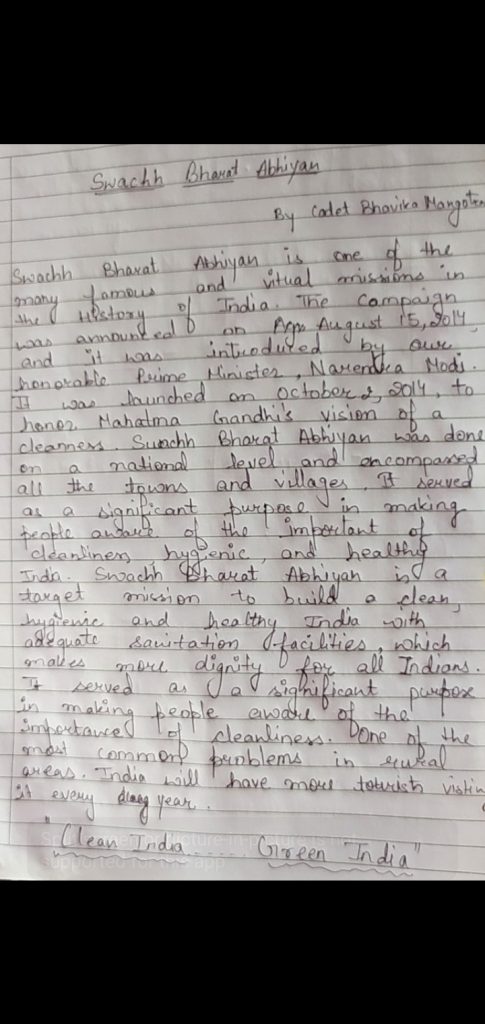 Swachh Bharat Abhiyan
By Cadet Bhavika Mangotra
Swachh Bharat Abhiyan is one of the
many famous and vitual missions in
the History of India. The Campaign
was announced on August 15, 2014,
and it was introduced by our
honorable Prime Minister, Narendra Modi.
It was launched on october 2, 2014, to
honor Mahatma Gandhi's vision of a
cleanness. Swachh Bharat Abhiyan was done
on a national level and encompassed
all the towns and villages. It served
as a significant purpose in making
people aware of the important of
cleanliness, hygienic, and healthy
India. Swachh Bharat Abhiyan is a
target mission to build a clean,
hygienic and healthy India with
adequate sanitation facilities, which
makes more dignity for all Indians.
It served as a significant purpose
in making people aware of the
importance of cleanliness. One of the
most common problems in rural
areas. India will have more tourish
it every year.
"Clean India..... Green India"